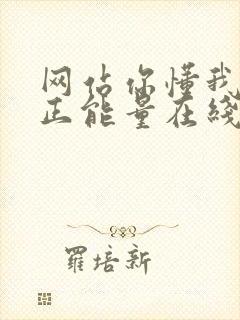 网站你懂我
正能量在线
羅培新